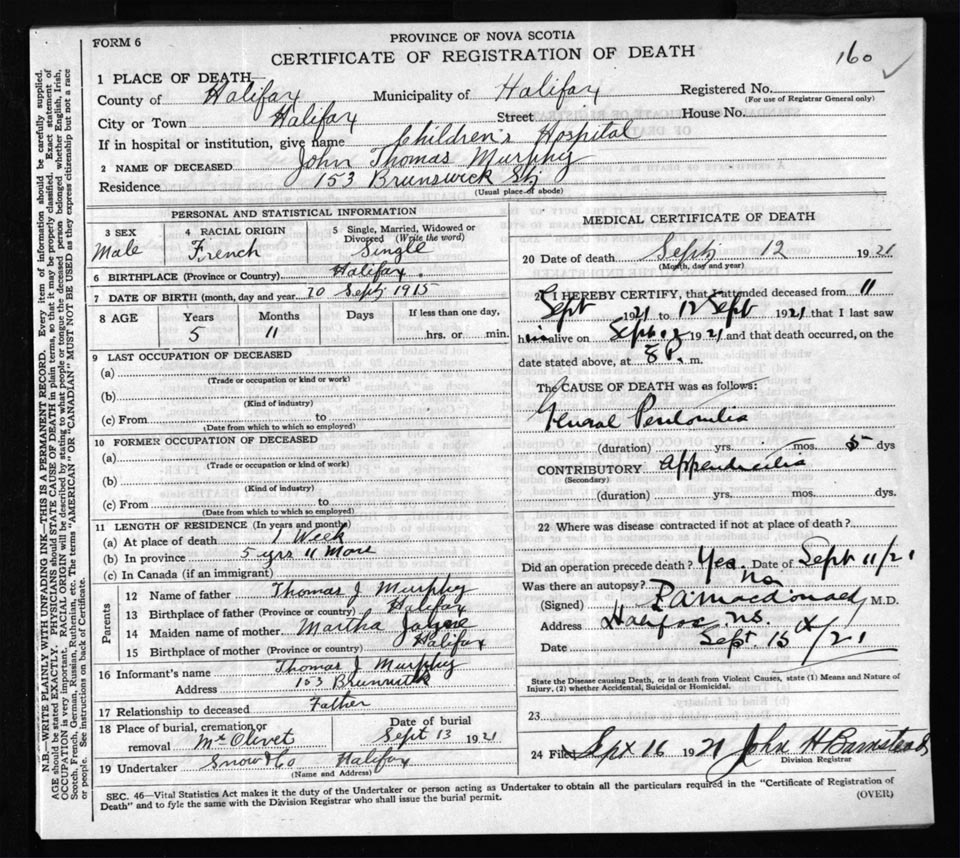 FORM 6
PROVINCE OF NOVA SCOTIA
CERTIFICATE OF REGISTRATION OF DEATH
160
1 PLACE OF DEATH—
County of Halifax Municipality of Halifax Registered No.
(For use of Registrar General only)
City or Town Halifax Street House No.
If in hospital or institution, give name Children's Hospital
2 NAME OF DECEASED John Thomas Murphy
Residence 153 Brunswick St
(Usual place of abode)
PERSONAL AND STATISTICAL INFORMATION
3 SEX 4 RACIAL ORIGIN 5 Single, Married, Widowed or
Divorced (Write the word)
Male French Single
6 BIRTHPLACE (Province or Country) Halifax.
7 DATE OF BIRTH (month, day and year) 10 Sept 1915
8 AGE Years Months Days If less than one day,
5 11 hrs. or min.
9 LAST OCCUPATION OF DECEASED
(a)
(Trade or occupation or kind or work)
(b)
(Kind of industry)
(c) From to
(Date from which to which so employed)
10 FORMER OCCUPATION OF DECEASED
(a)
(Trade or occupation or kind of work)
(b)
(Kind of industry)
(c) From to
(Date from which to which so employed)
11 LENGTH OF RESIDENCE (In years and months)
(a) At place of death 1 Week
(b) In province 5 yrs 11 Mons
(c) In Canada (if an immigrant)
Parents
12 Name of father Thomas J Murphy
13 Birthplace of father (Province or country) Halifax
14 Maiden name of mother Martha
15 Birthplace of mother (Province or country) Halifax
16 Informant's name Thomas J Murphy
Address 153 Brunswick
17 Relationship to deceased Father
18 Place of burial, cremation or Date of burial
removal Mt Olivet Sept 13 1921
19 Undertaker Snow & Co Halifax
(Name and Address)
MEDICAL CERTIFICATE OF DEATH
20 Date of death Sept 12 1921
(Month, day and year)
I HEREBY CERTIFY, that I attended deceased from 11
Sept 1921 to 12 Sept 1921 that I last saw
him alive on Sept 12 1921 and that death occurred, on the
date stated above, at 8 P. m.
The CAUSE OF DEATH was as follows:
General Peritonitis
(duration) yrs. mos. 5 dys
CONTRIBUTORY Appendicitis
(Secondary)
(duration) yrs. mos. dys.
22 Where was disease contracted if not at place of death?
Did an operation precede death? Yes. Date of Sept 11/21
Was there an autopsy? No
(Signed) Macdonald M.D.
Address Halifax N.S.
Date Sept. 15 /21
State the Disease causing Death, or in death from Violent Causes, state (1) Means and Nature of
Injury, (2) whether Accidental, Suicidal or Homicidal.
23
24 Filed Sept 16 1921 John H Barnstead
Division Registrar
SEC. 46—Vital Statistics Act makes it the duty of the Undertaker or person acting as Undertaker to obtain all the particulars required in the "Certificate of Registration of
Death" and to fyle the same with the Division Registrar who shall issue the burial permit.
(OVER)
N.B.—WRITE PLAINLY WITH UNFADING INK—THIS IS A PERMANENT RECORD. Every item of information should be carefully supplied.
AGE should be stated EXACTLY. PHYSICIANS should STATE CAUSE OF DEATH in plain terms, so that it may be properly classified. Exact statement of
OCCUPATION is very important. RACIAL ORIGIN will be described by stating to what people or tongue the deceased person belonged, whether English, Irish,
Scotch, French, German, Russian, Ruthenian, etc. The terms "AMERICAN" OR "CANADIAN" MUST NOT BE USED as they express citizenship but not a race
or people. See instructions on back of Certificate.